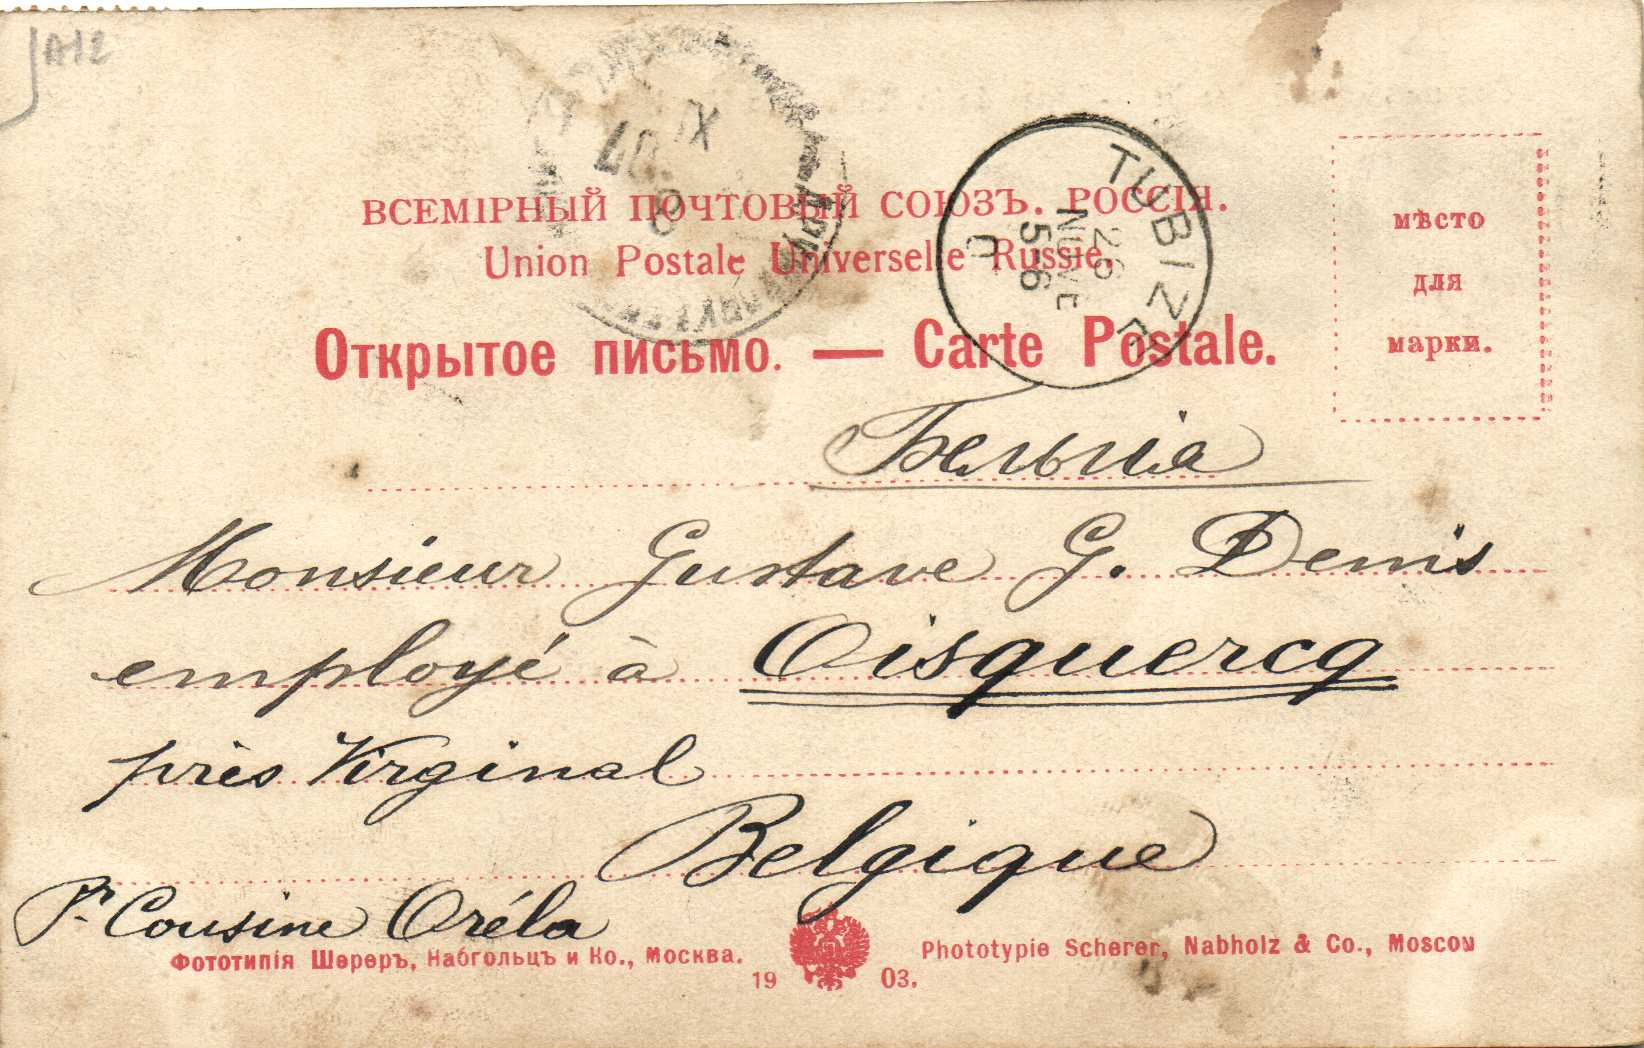 A12
ВСЕМІРНЫЙ ПОЧТОВЫЙ СОЮЗЪ. РОССІЯ.
Union Postale Universelle Russie.
Открытое письмо. — Carte Postale.
мѣсто
для
марки.
TUBIZE
26
5-6
IX
Бельгія
Monsieur Gustave G. Denis
employé à Oisquercq
près Virginal
Belgique
Pr Cousine Oréla
Фототипія Шереръ, Набгольцъ и Ко., Москва.
1903.
Phototypie Scherer, Nabholz & Co., Moscou